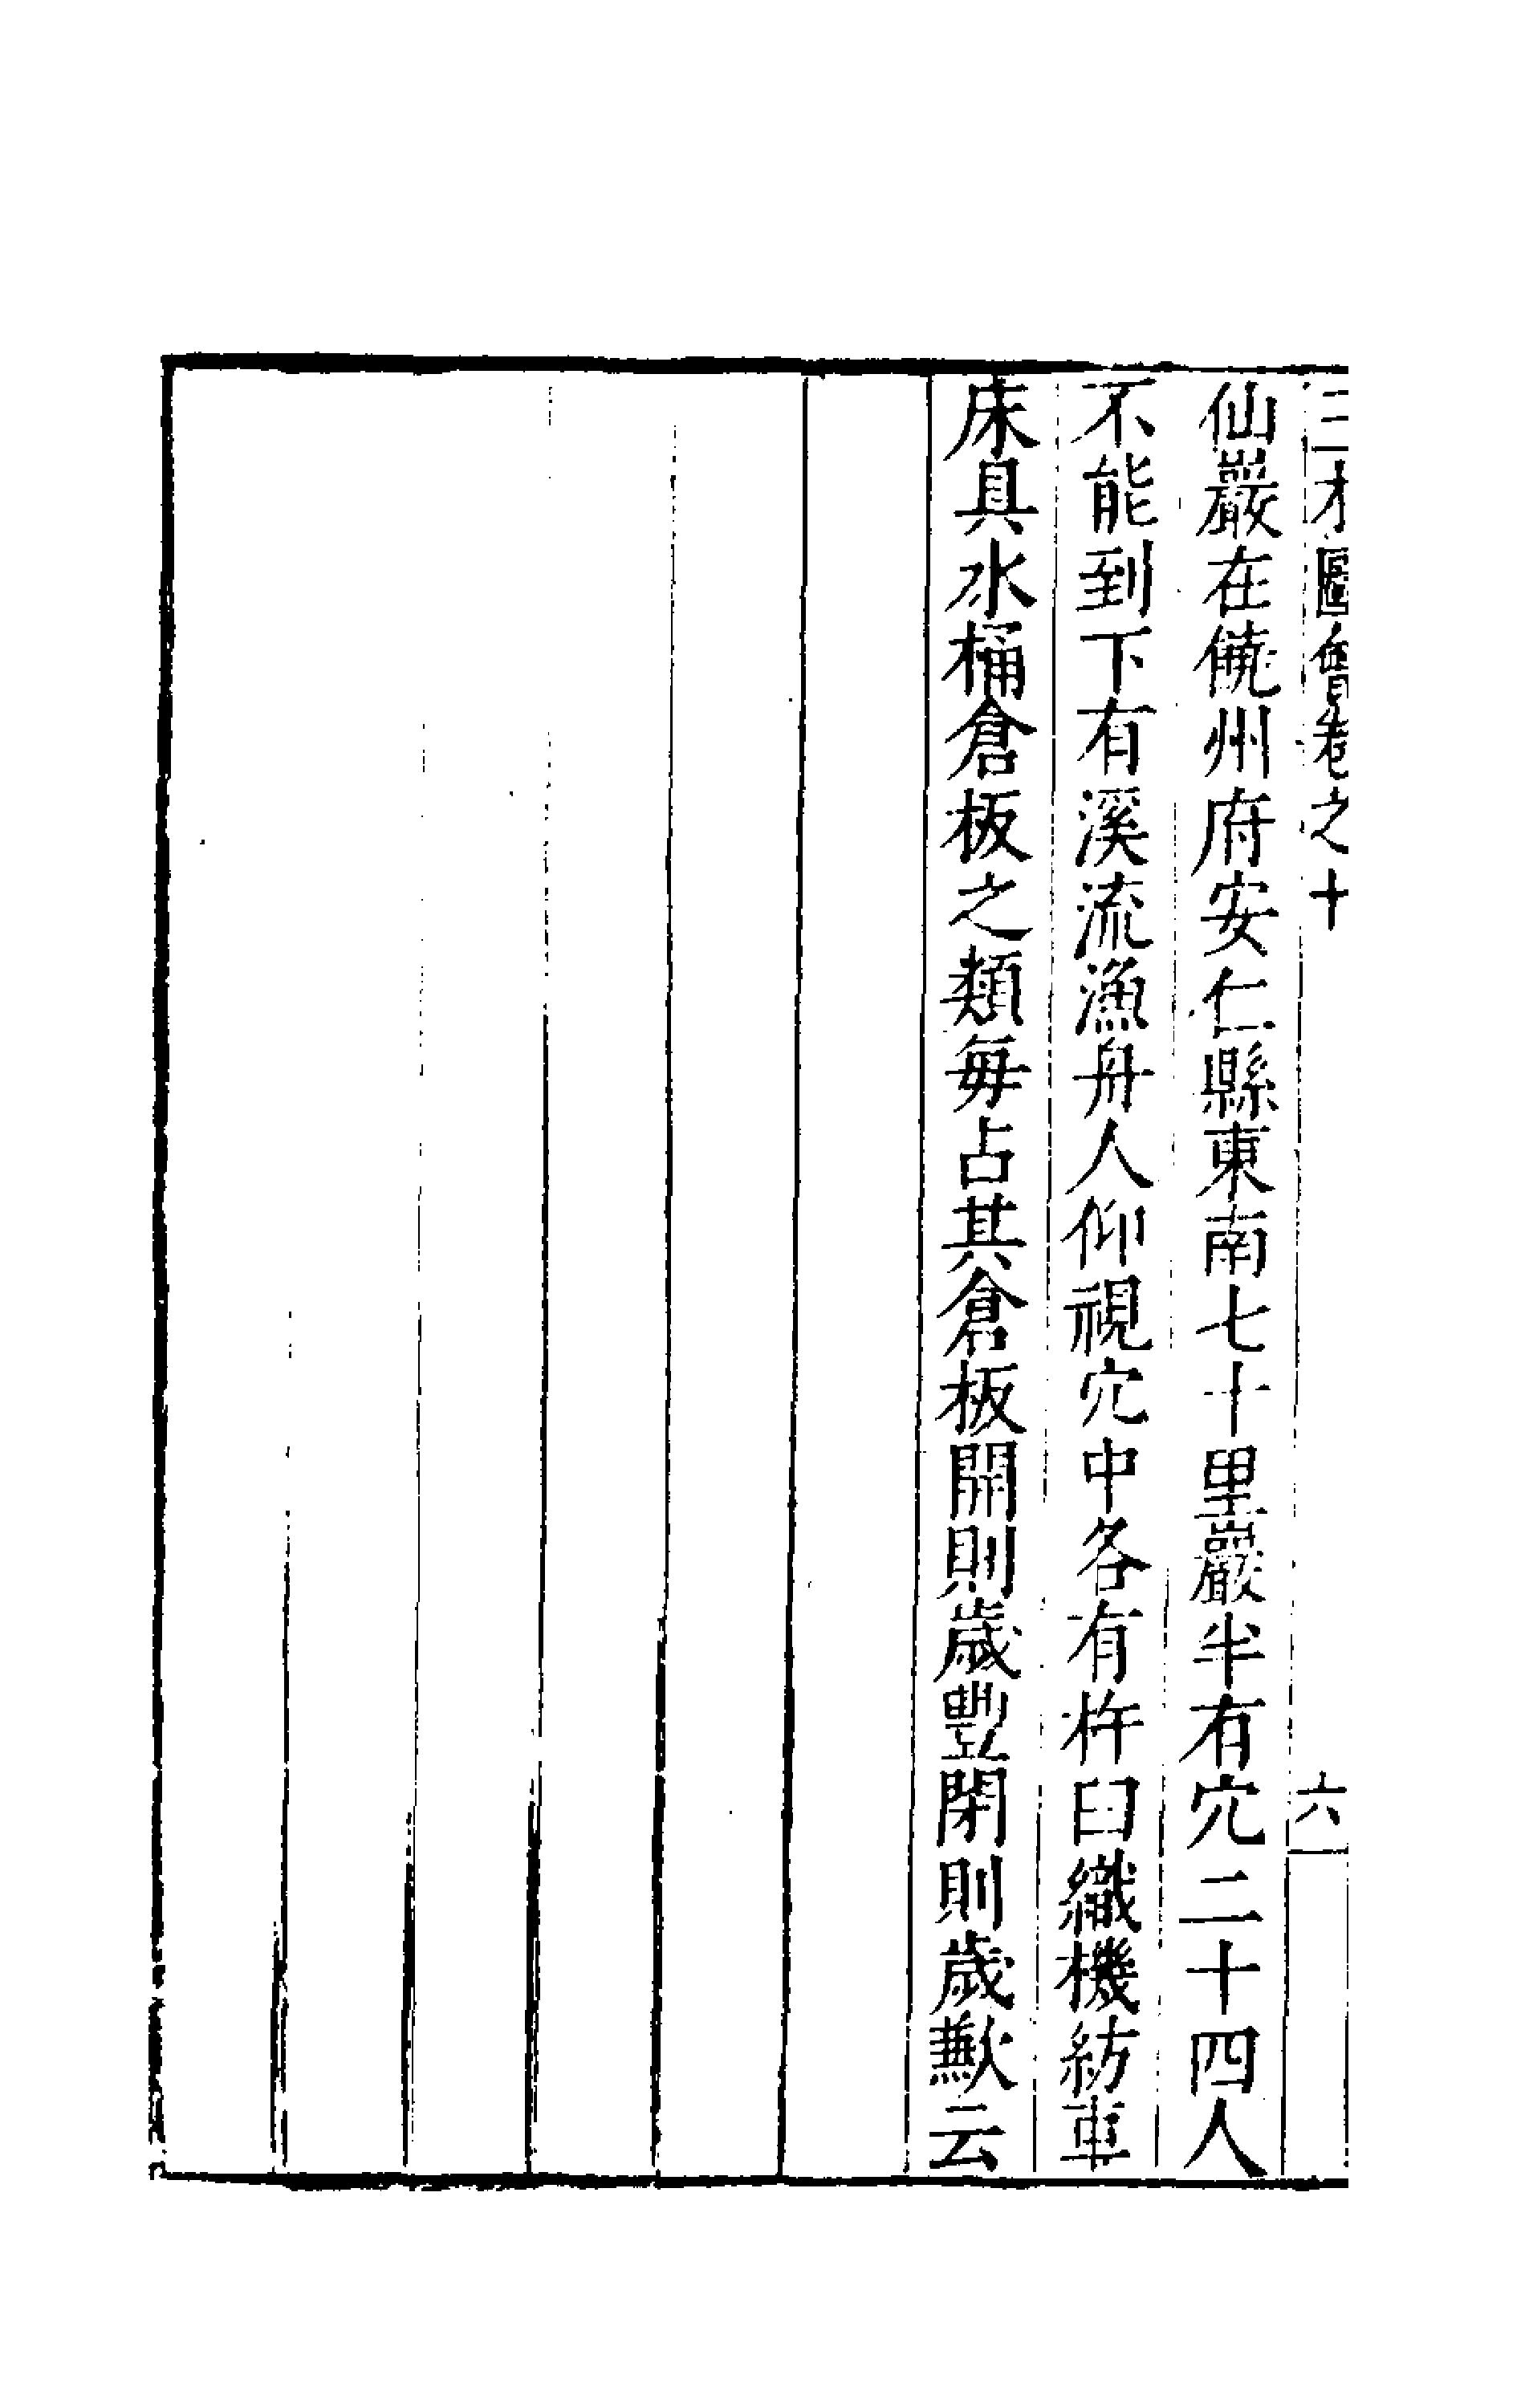 三才圖會卷之十
六
仙巖在饒州府安仁縣東南七十里巖半有穴二十四人
不能到下有溪流漁舟人仰視穴中各有杵臼織機紡車
床具水桶倉板之類每占其倉板開則歲豐閉則歲歉云